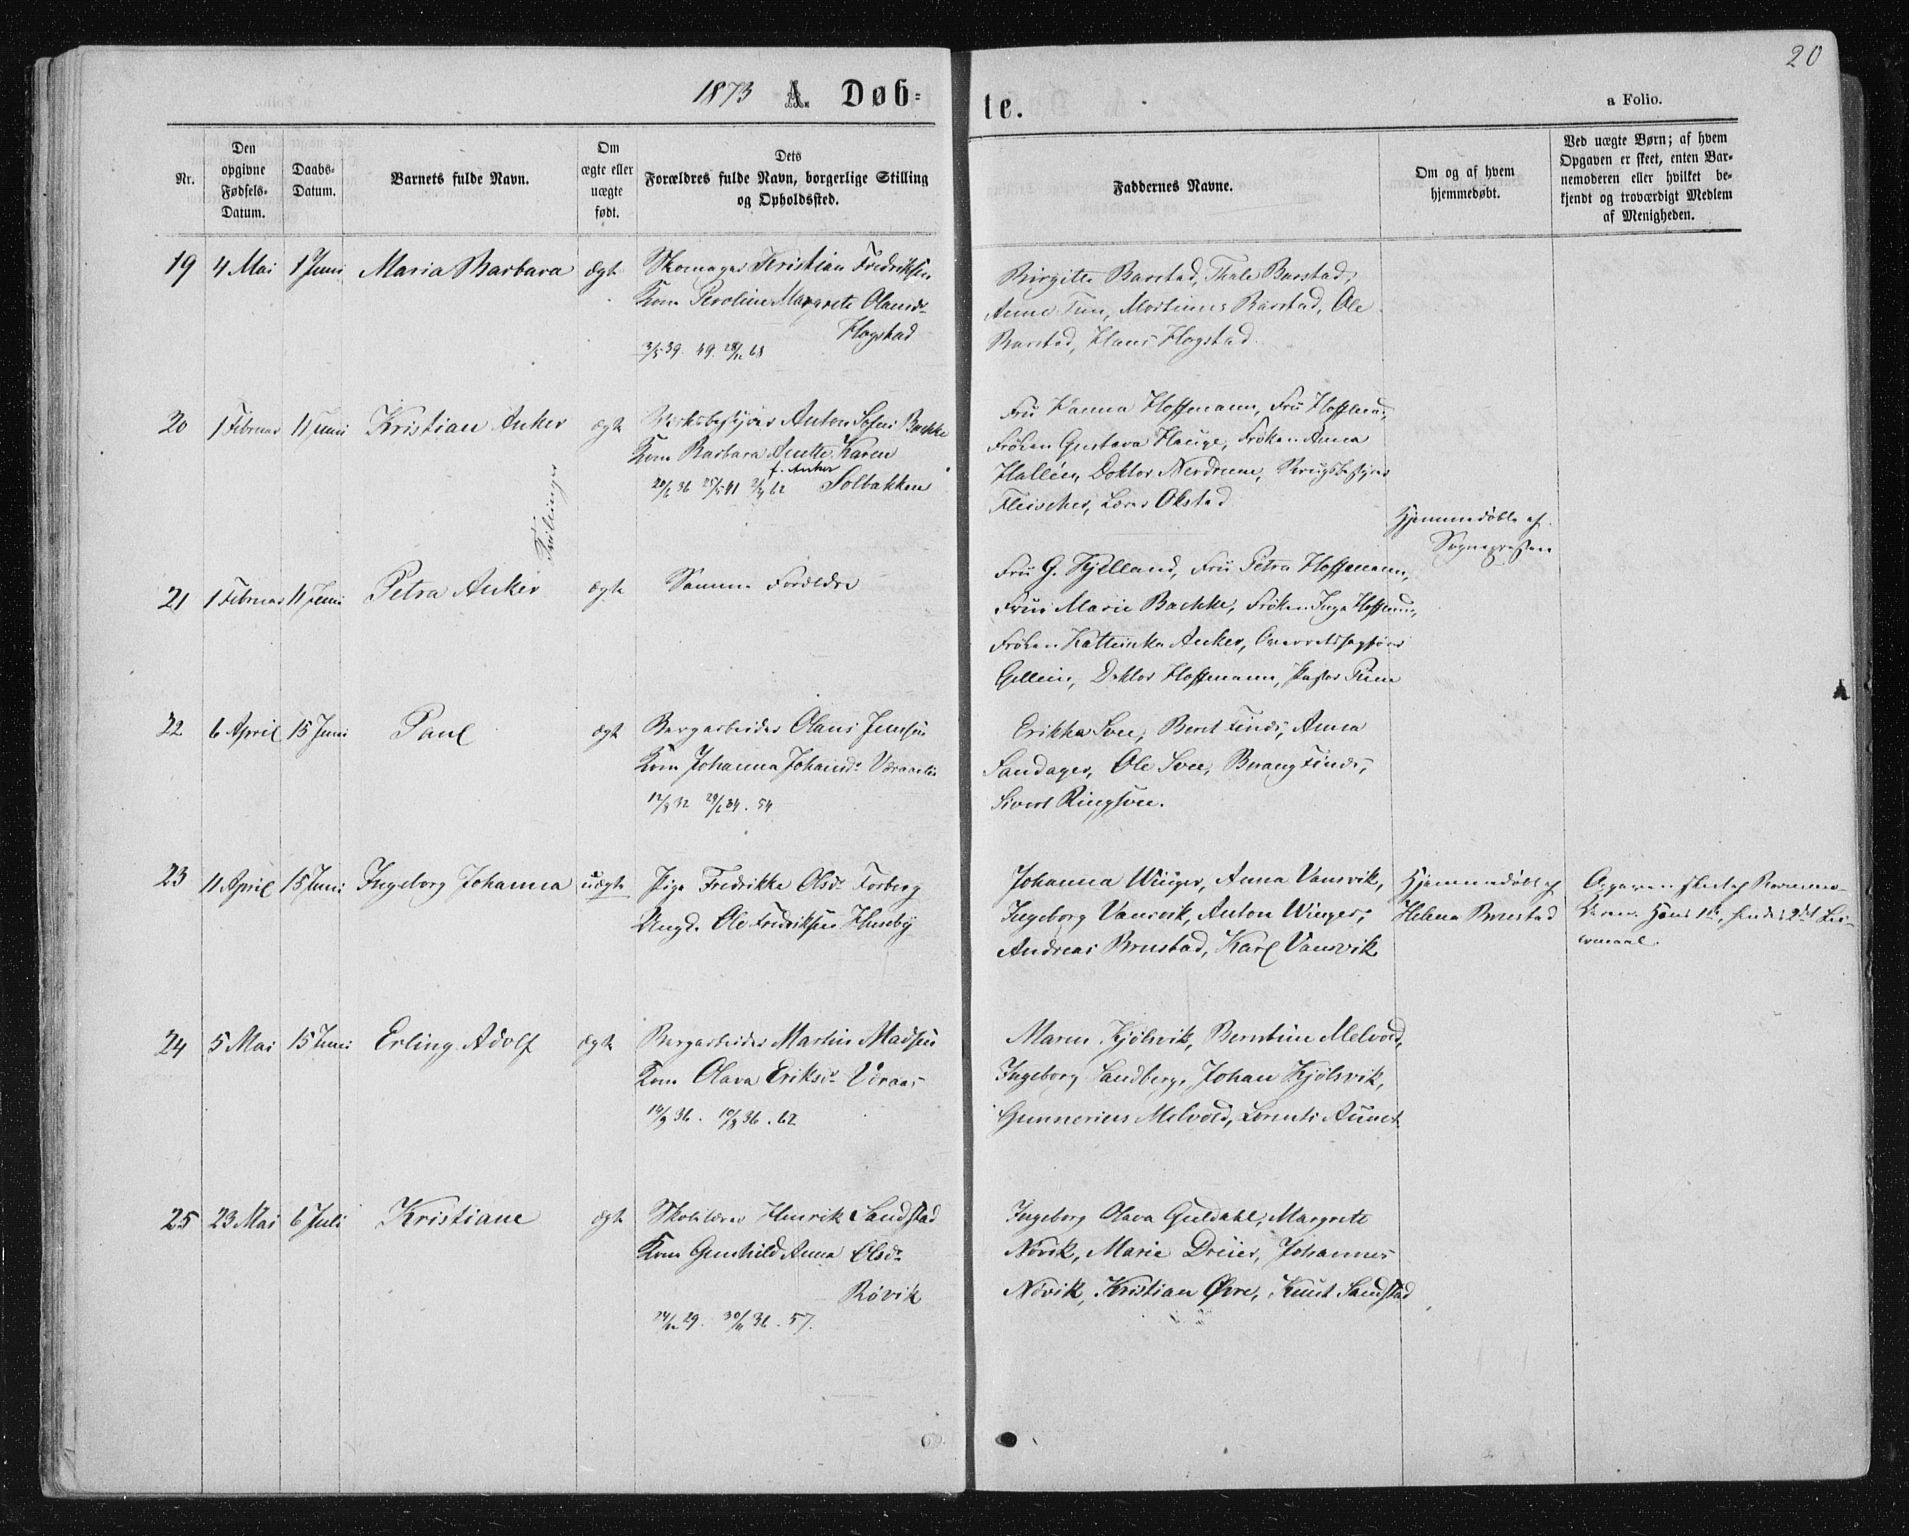 20
1873 A. Døb-
te.
a Folio.
Nr.
Den
opgivne
Fødsels-
Datum.
Daabs-
Datum.
Barnets fulde Navn.
Om
ægte eller
uægte
født.
Dets
Forældres fulde Navn, borgerlige Stilling
og Opholdssted.
Faddernes Navne.
Om og af hvem
hjemmedøbt.
Ved uægte Børn; af hvem
Opgaven er skeet, enten Bar-
nemoderen eller hvilket be-
kjendt og troværdigt Medlem
af Menigheden.
19 4 Mai 1 Juni Maria Barbara ægte
Skomager Kristian Fredriksen
Kone Margrete Olausdr
Hogstad
3/5 39. 49. 68
Birgitte Barstad, Thale Barstad,
Anne Tun, Mortinus Barstad, Ole
Barstad, Hans Hogstad.
20 1 Februar 11 Juni Kristian Anker ægte
Tvillinger
Anton Sofus Bachke
Kone Barbara Anette Karen
f. Anker
Solbakken
Fru Hanna Hoffmann, Fru Hoffmann,
Frøken Gustava Hauge, Frøken Anna
Halléen, Doktor Nerdrum, Brugsbestyrer
Fleischer, Lærer Okstad
Hjemmedøbte af
Sognepresten
21 1 Februar 11 Juni Petra Anker ægte
Samme Forældre
Fru G. Kjelland, Fru Petra Hoffmann,
Fru Marie Bachke, Frøken Inga Hoffmann,
Frøken Kattinka Anker, Overretssagfører
Gellein, Doktor Hoffmann, Pastor
22 6 April 15 Juni Paul ægte
Bergarbeider Olaus Jensen
Kone Johanna Johansdr
54
Erikka Svee, Beret Finds, Anna
Sandager, Ole Svee, Finds,
Sivert Ringsvee.
23 11 April 15 Juni Ingeborg Johanna uægte
Pige Fredrikke Olsdr Forberg
Ungk. Ole Fredriksen Huseby
Johanna Winger, Anna Vansvik,
Ingeborg Vansvik, Anton Winger,
Andreas Brustad, Karl Vansvik
Hjemmedøbt af
Helena Brustad
Opgaven skeet af Barnemo-
deren. Hans 1ste, hendes 2det Lei-
ermaal.
24 5 Mai 15 Juni Erling Adolf ægte
Bergarbeider Martin Madsen
Kone Olava Eriksdr
36. 36. 62
Maren Kjølsvik, Berntine Melvold,
Ingeborg Sandberg, Johan Kjølsvik,
Gunnerius Melvold, Lorents Aunet
25 23 Mai 6 Juli Kristiane ægte
Skolelærer Henrik Sandstad
Kone Gunhild Anna Olsdr
Røvik
29. 36. 57.
Ingeborg Olava Guldahl, Margrete
Nøvik, Marie Dreier, Johannes
Nøvik, Kristian Øvre, Knut Sandstad